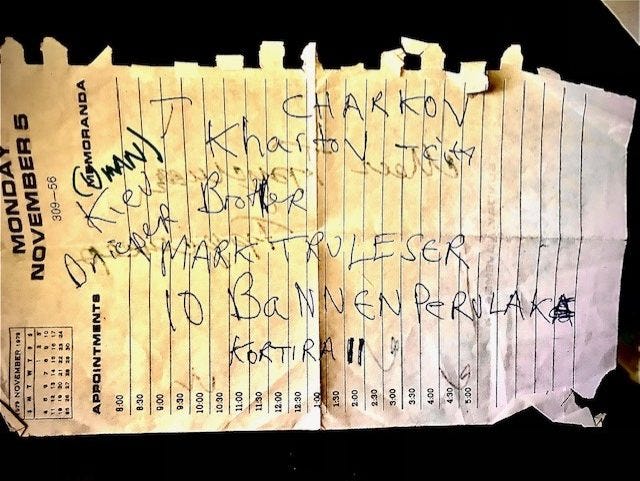 MONDAY
NOVEMBER 5
309–56
MEMORANDA
CHARKOV
Kharkov
Kiev
Brother
Dnieper
MARK TRULESER
10 BANNEN PERULAK
KORTIRA 11
APPOINTMENTS
8:00
8:30
9:00
9:30
10:00
10:30
11:00
11:30
12:00
12:30
1:00
1:30
2:00
2:30
3:00
3:30
4:00
4:30
5:00
NOVEMBER 1979
S M T W T F S